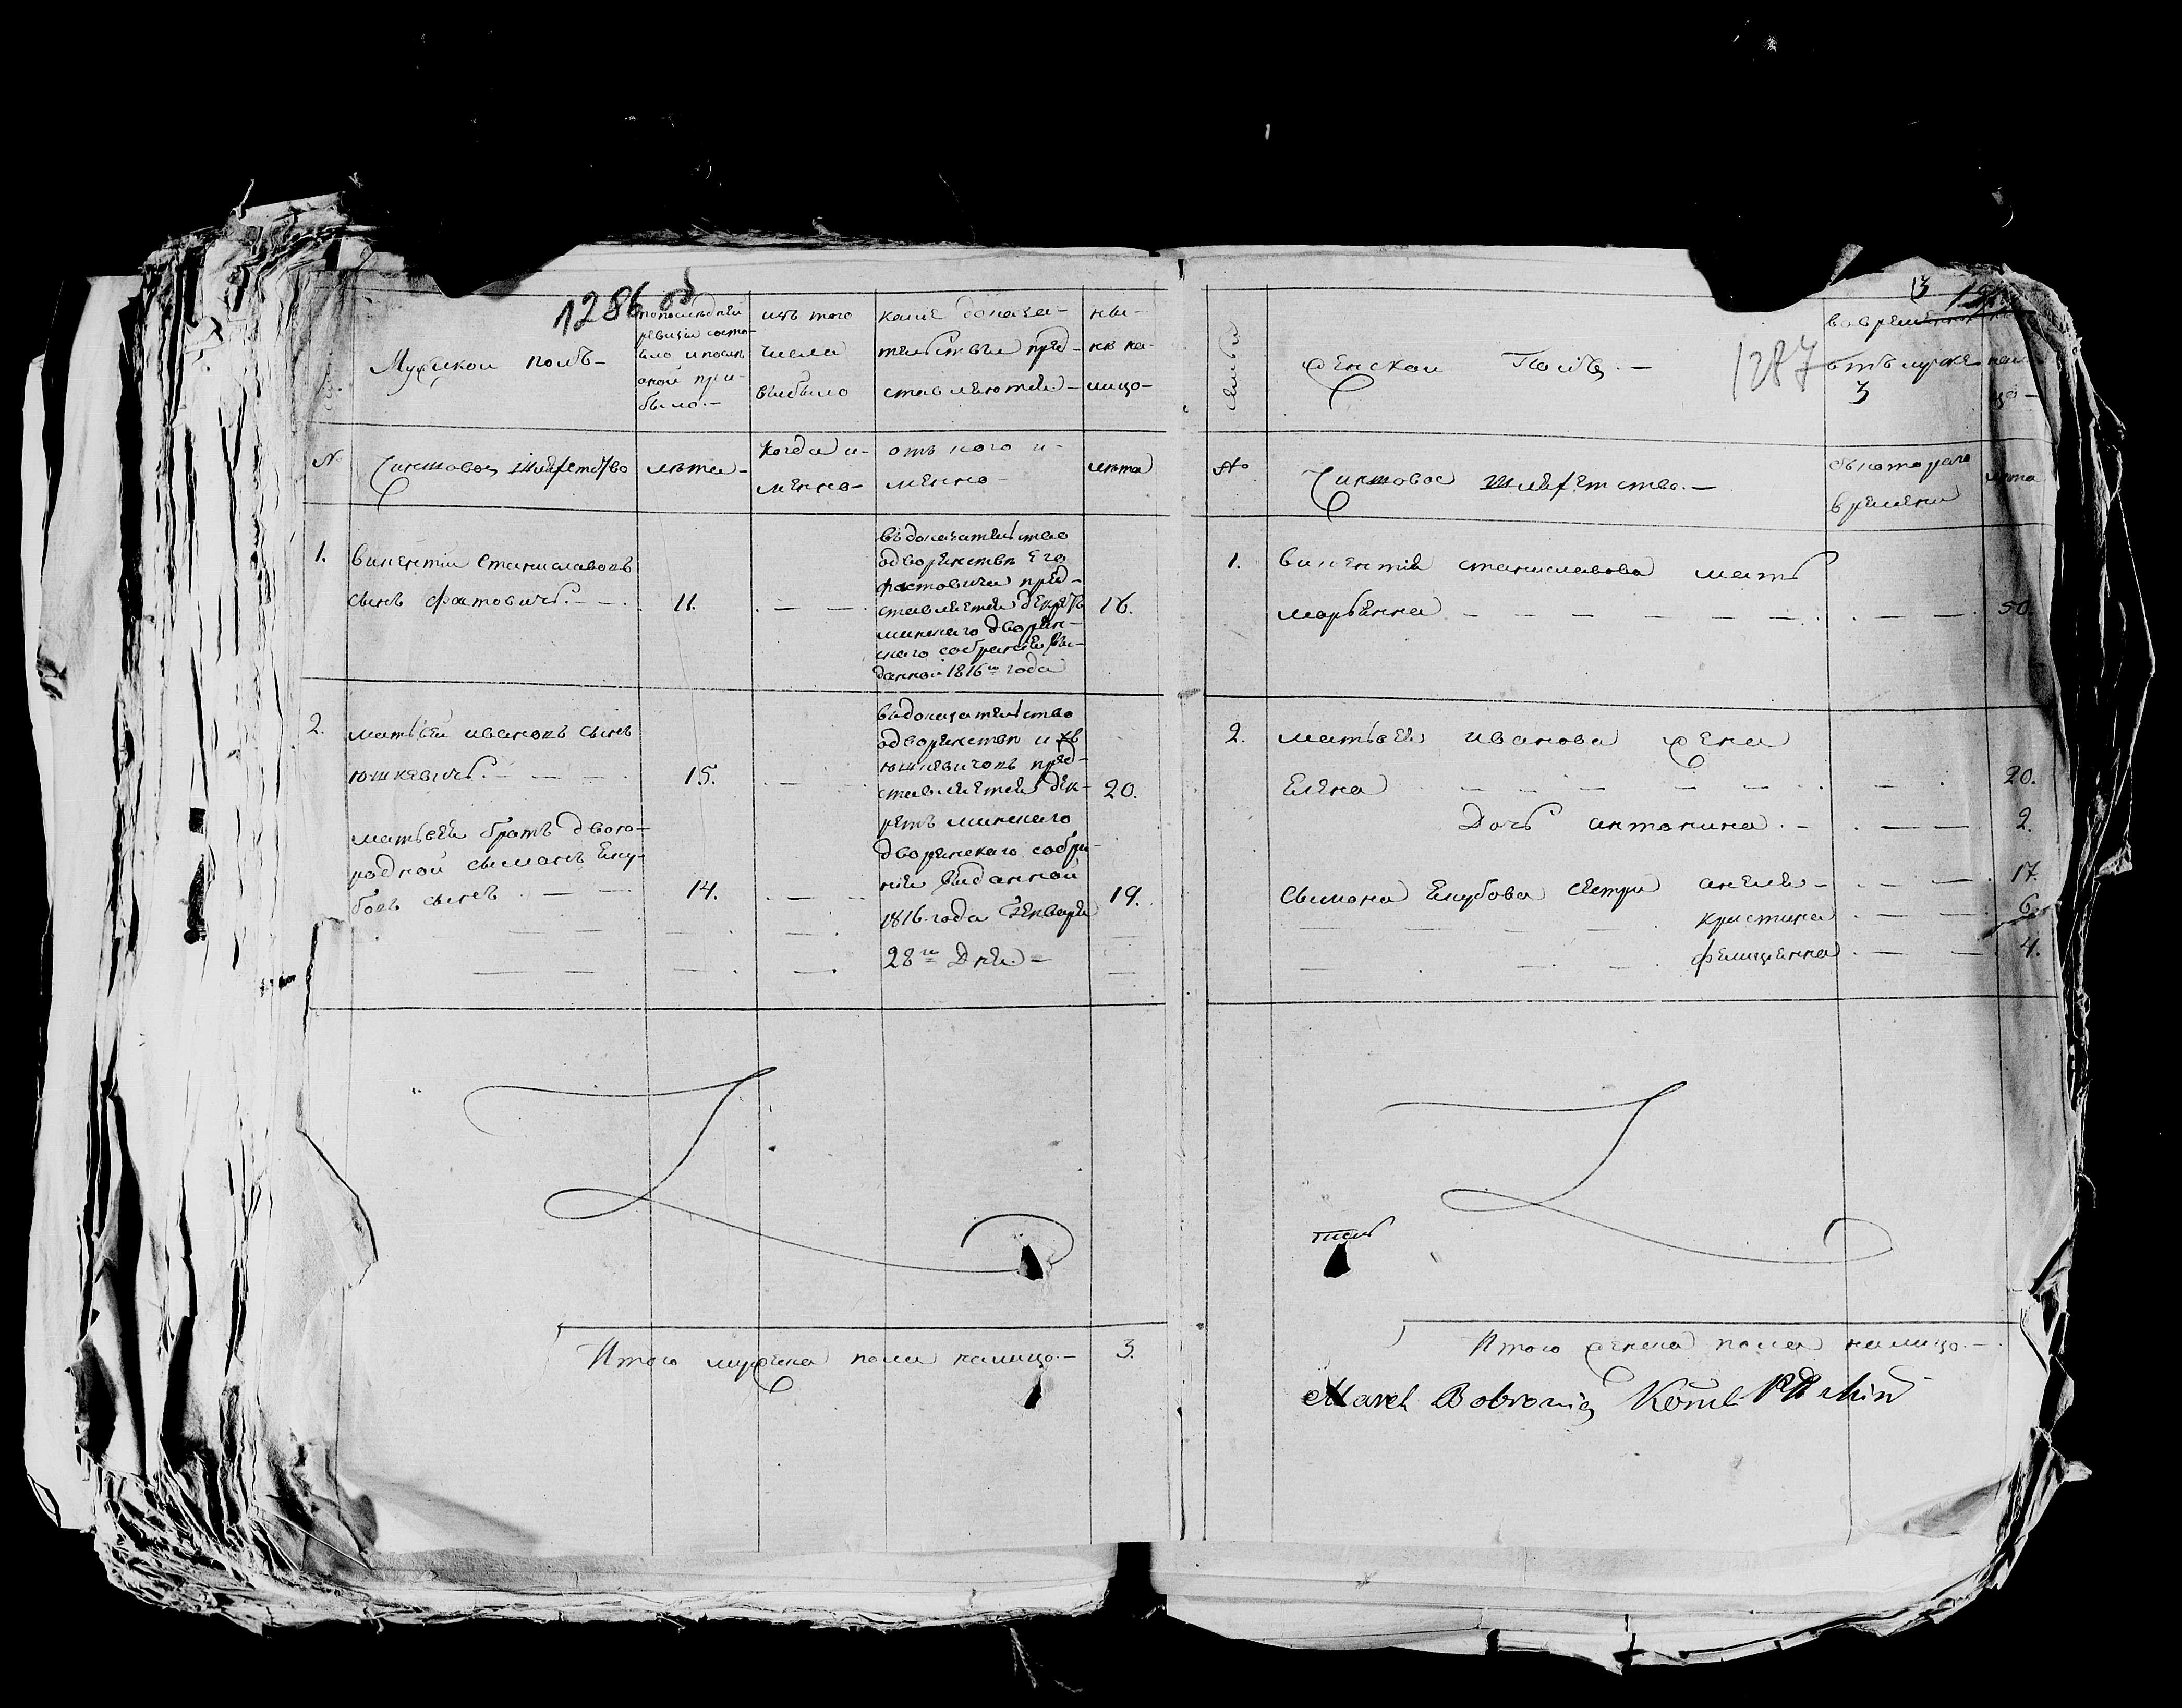 1286 об
Мужской полъ-
по последней
ревизiи состо-
яло и после
оной при-
было.-
изъ того
числа
выбыло
какие доказа-
тельствы пред-
ставляются-
ны-
не на-
лицо-
№
Чиншовое Шляхетство
лета-
когда и-
менно-
отъ кого и-
менно-
лета
1.
винентiй Станиславовъ
сынъ фастовичъ.- — .
11.
. — — .
въ доказательство
о дворянстве Его
фастовича пред-
ставляется декретъ
минскаго дворян-
скаго собранiя вы-
данной 1816го года
16.
2.
матвей ивановъ сынъ
юшкевичъ. - — — .
15.
. — — .
въ доказательство
о дворянстве ихъ
юшкевичовъ пред-
ставляется дек-
ретъ минскаго
дворянскаго собра-
нiя выданной
1816. года Генваря
28го Дня.-
20.
матвея братъ двою-
родной сымонъ Яку-
бовъ сынъ . — —
14.
. — — .
19.
Итого мужеска пола налицо.-
3.
13
1287
семьи
женской Полъ. -
во временной
отлучке
3
нали
цо-
№
Чиншовое шляхетство.-
съ котораго
времени
лета
1.
винентiя станиславова мать
марьянна — — — — — — .
. — — .
50.
2.
матвея иванова жена
Елена . — — — — — .
— .
20.
Дочь антонина. -
. — —
2.
сымона Якубова сестры анеля-
. — — .
17.
кристина
. — —
6.
фелицiянна
. — — .
4.
Итого женска пола налицо.-
Marek Bobrowicz